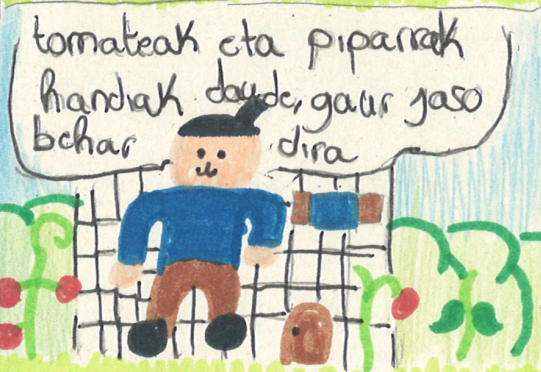 tomateak eta piparrak
handiak daude, gaur jaso
behar dira